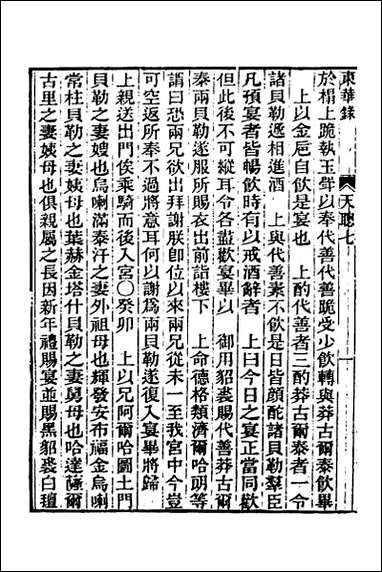 東華錄 天聰七 一
於榻上跪執玉斝以奉代善代善跪受少飲轉與莽古爾泰飲畢
上以金巵自飲是宴也 上酌代善者三酌莽古爾泰者一令
諸貝勒遞相進酒 上與代善素不飲是日皆顏酡諸貝勒羣臣
凡預宴者皆暢飲時有以戒酒辭者 上曰今日之宴正當同歡
但此後不可縱耳令各盡歡宴畢以 御用貂裘賜代善莽古爾
泰兩貝勒遂服所賜衣出前詣樓下 上命德格類濟爾哈朗等
謂曰恐兩兄欲出拜謝朕卽位以來兩兄從未一至我宮中今豈
可空返所奉不過將意耳何以謝爲兩貝勒遂復入宴畢將歸
上親送出門俟乘騎而後入宮○癸卯 上以兄阿爾哈圖土門
貝勒之妻姨母也烏喇滿泰汗之妻外祖母也輝發安布福金烏喇
常柱貝勒之妻姨母也葉赫金塔什貝勒之妻舅母也哈達薩爾
古里之妻姨母也俱親屬之長因新年禮賜宴並賜黑貂裘白氊